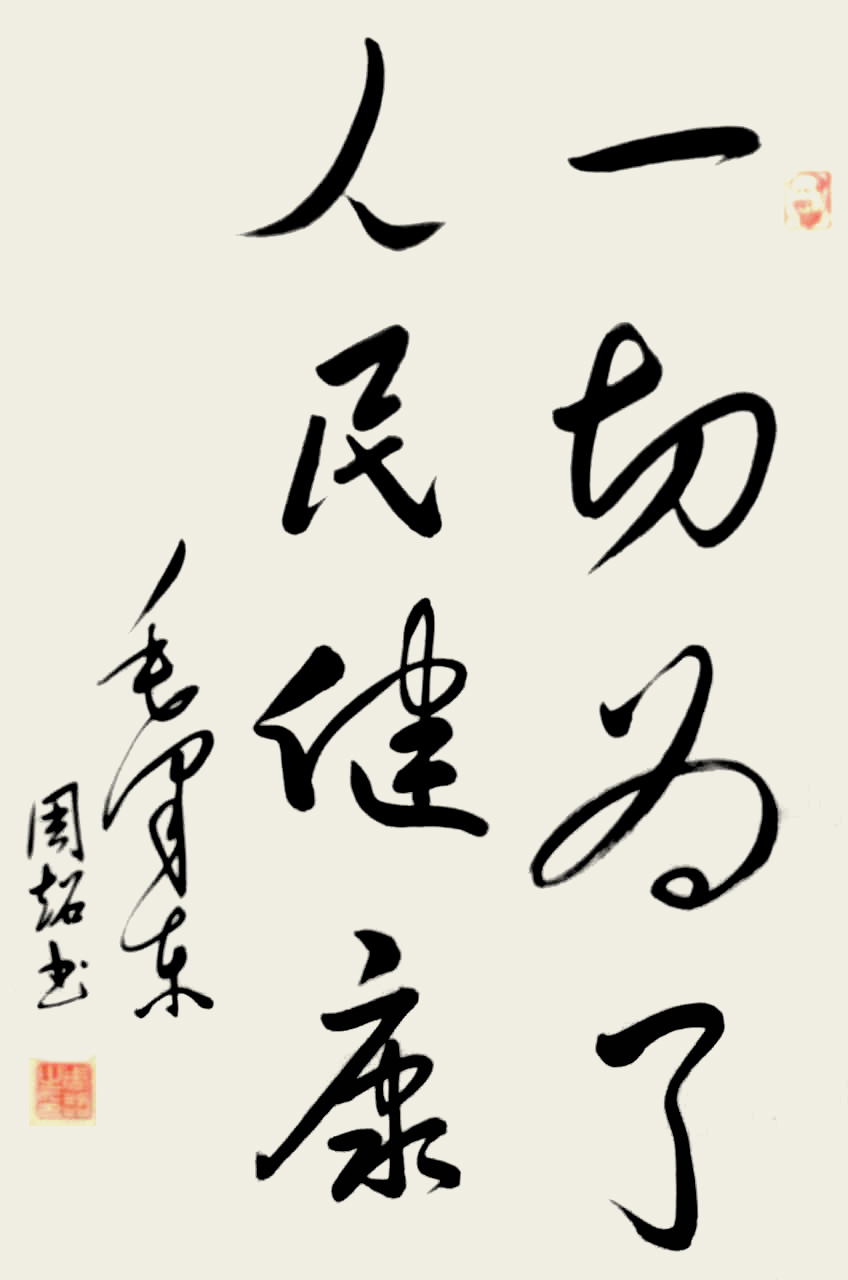 一切为了
人民健康
毛泽东
周超书